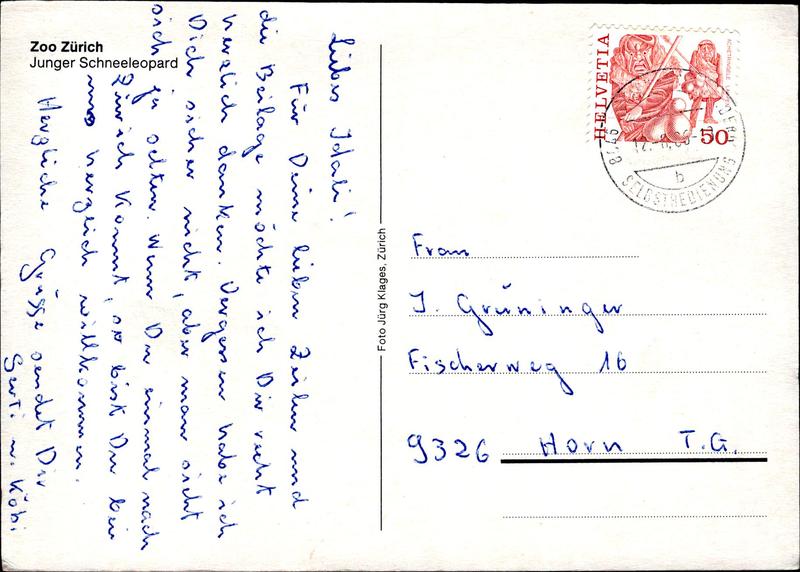 Zoo Zürich
Junger Schneeleopard
Liebes Idali!
Für Deine lieben Zeilen und
die Beilage möchte ich Dir recht
herzlich danken. Vergessen habe ich
Dich sicher nicht, aber man sieht
sich ja selten. Wenn Du einmal nach
Zürich kommst, so bist Du bei
uns herzlich willkommen.
Herzliche Grüsse sendet Dir
Gerti u. Köbi
Foto Jürg Klages, Zürich
HELVETIA
50
SELBSTBEDIENUNG
b
Frau
I. Grüninger
Fischerweg 16
9326 Horn T.G.